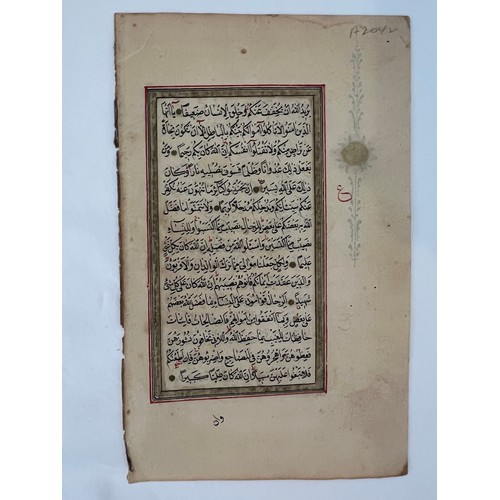 A2042
يريد الله ان يخفف عنكم وخلق الانسان ضعيفا يا ايها
الذين امنوا لا تاكلوا اموالكم بينكم بالباطل الا ان تكون تجارة
عن تراض منكم ولا تقتلوا انفسكم ان الله كان بكم رحيما ومن
يفعل ذلك عدوانا وظلما فسوف نصليه نارا وكان
ذلك على الله يسيرا ان تجتنبوا كبائر ما تنهون عنه نكفر
عنكم سيئاتكم وندخلكم مدخلا كريما ولا تتمنوا ما فضل
الله به بعضكم على بعض للرجال نصيب مما اكتسبوا وللنساء
نصيب مما اكتسبن واسئلوا الله من فضله ان الله كان بكل شئ
عليما ولكل جعلنا موالي مما ترك الوالدان والاقربون
والذين عقدت ايمانكم فاتوهم نصيبهم ان الله كان على كل شئ
شهيدا الرجال قوامون على النساء بما فضل الله بعضهم
على بعض وبما انفقوا من اموالهم فالصالحات قانتات
حافظات للغيب بما حفظ الله واللاتي تخافون نشوزهن
فعظوهن واهجروهن في المضاجع واضربوهن فان اطعنكم
فلا تبغوا عليهن سبيلا ان الله كان عليا كبيرا
ع
وان